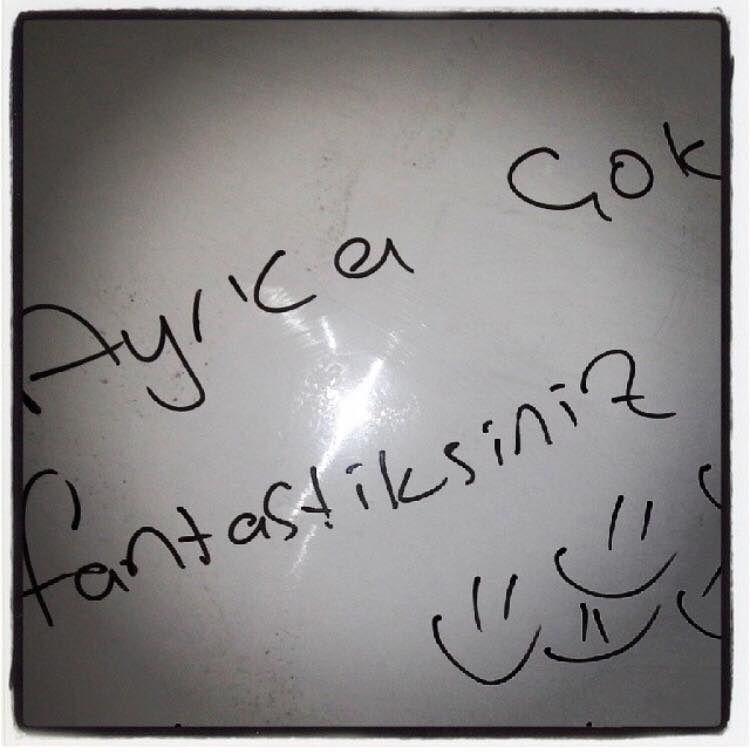 Ayrıca Çok
fantastiksiniz